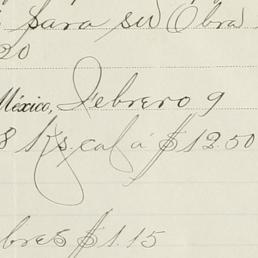 para su Obra
20
México, Febrero 9
8 Ks. cal á $12.50
bres $1.15